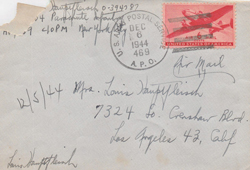 Parachute Infantry
A.P.O. New York
U.S. POSTAL SERVICE
DEC
6
1944
469
A.P.O.
UNITED STATES OF AMERICA
Air Mail
12/5/44 Mrs. Louis Hauptfleisch
7324 So. Crenshaw Blvd.
Los Angeles 43, Calif
Louis Hauptfleisch